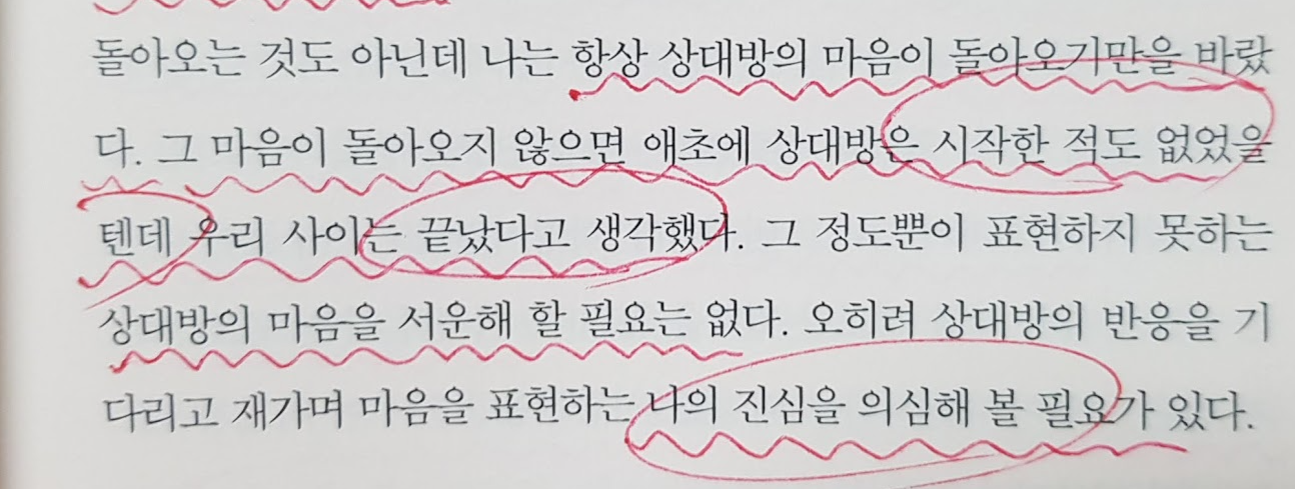 돌아오는 것도 아닌데 나는 항상 상대방의 마음이 돌아오기만을 바랐
다. 그 마음이 돌아오지 않으면 애초에 상대방은 시작한 적도 없었을
텐데 우리 사이는 끝났다고 생각했다. 그 정도뿐이 표현하지 못하는
상대방의 마음을 서운해 할 필요는 없다. 오히려 상대방의 반응을 기
다리고 재가며 마음을 표현하는 나의 진심을 의심해 볼 필요가 있다.